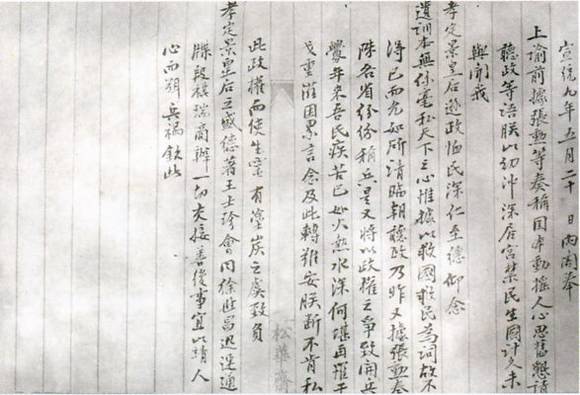 宣統九年五月二十 日內閣奉
上諭前據張勳等奏稱國本動搖人心思舊懇請
聽政等語朕以幼沖深居宮禁民生國計久未
與聞我
孝定景皇后遜政恤民深仁至德仰念
遺訓本無絲毫私天下之心惟據以救國救民為詞故不
得已而允如所請臨朝聽政乃昨又據張勳奏
陳各省紛紛稱兵是又將以政權之爭致開兵
釁年來吾民疾苦已如火熱水深何堪再罹干
戈重困累言念及此轉難安朕斷不肯私
此政權而使生靈有塗炭之虞致負
孝定景皇后之盛德著王士珍會同徐世昌迅速通
牒段祺瑞商辦一切交接善後事宜以靖人
心而弭兵禍欽此
松華齋